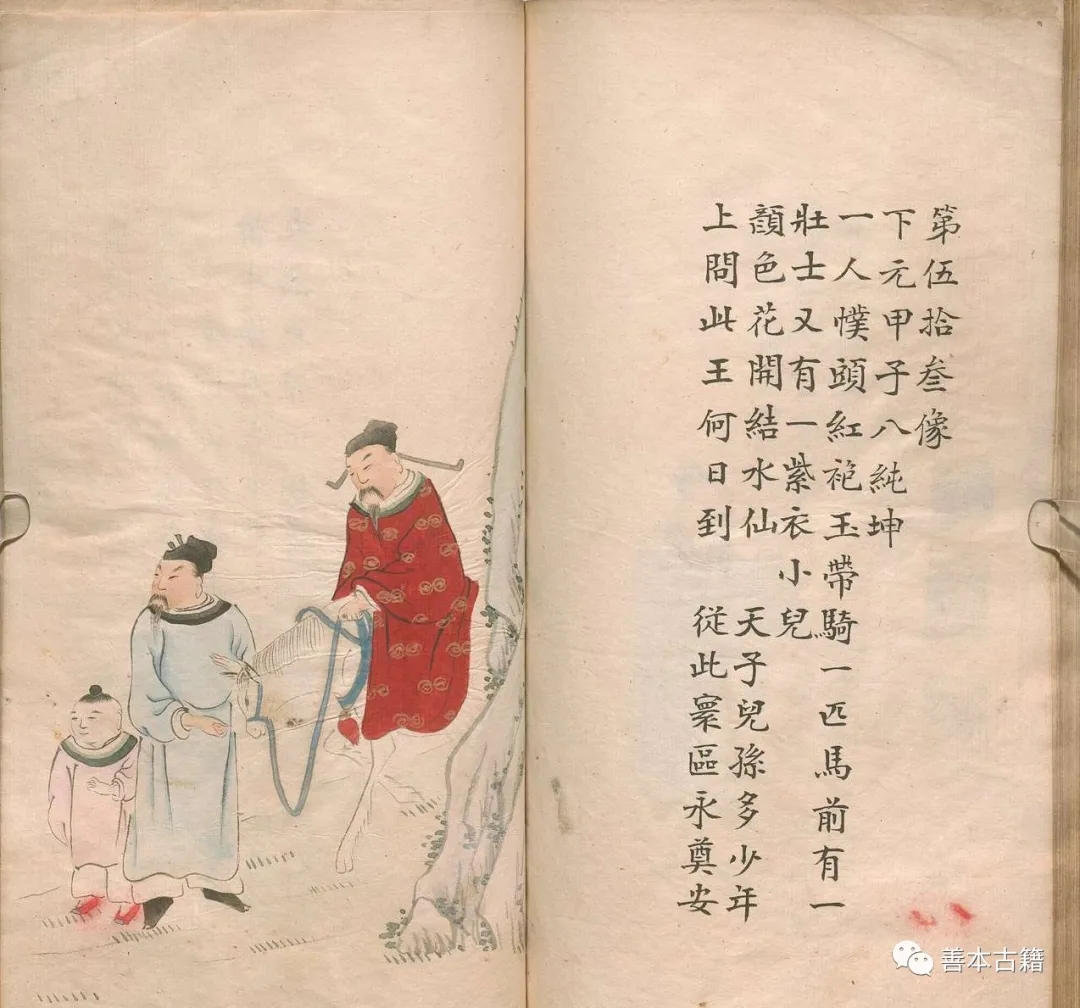 第伍拾叁像
下元甲子八純坤
一人幞頭紅袍玉帶騎一匹馬前有一
壯士又有一紫衣小兒
顏色花開結水仙 天子兒孫多少年
上問此王何日到 從此寰區永奠安
善本古籍